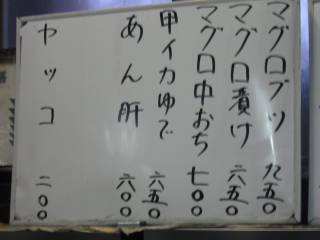 マグロブツ 九五〇
マグロ漬け 六五〇
マグロ中おち 七〇〇
甲イカゆで 六五〇
あん肝 六〇〇
ヤッコ 二〇〇